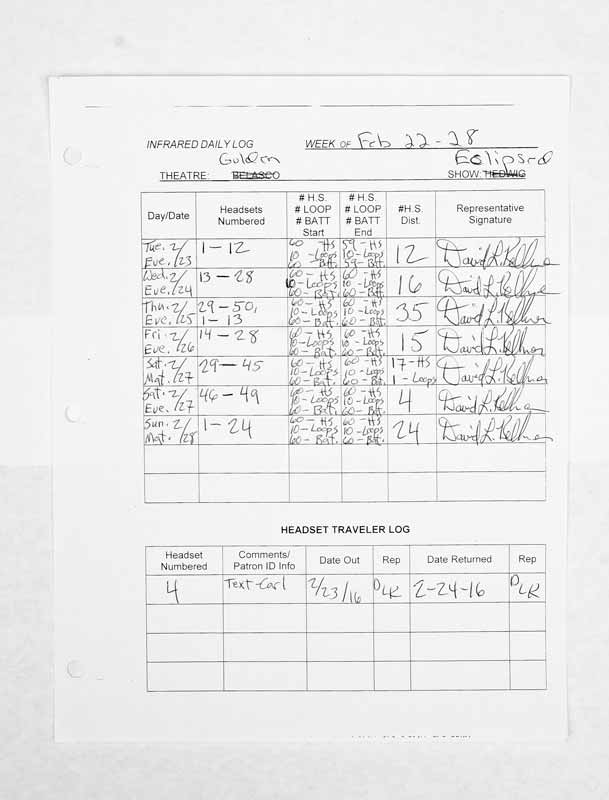 INFRARED DAILY LOG WEEK OF Feb 22-28
Golden Eclipsed
THEATRE: BELASCO SHOW: HEDWIG
Day/Date Headsets Numbered # H.S. # LOOP # BATT Start # H.S. # LOOP # BATT End #H.S. Dist. Representative Signature
Tue. 2/23 Eve. 1-12 60-HS 10-Loops 60-Batt. 59-HS 10-Loops 59-Batt. 12 David L. Kellman
Wed. 2/24 Eve. 13-28 60-HS 10-Loops 60-Batt. 60-HS 10-Loops 60-Batt. 16 David L. Kellman
Thu. 2/25 Eve. 29-50, 1-13 60-HS 10-Loops 60-Batt. 60-HS 10-Loops 60-Batt. 35 David L. Kellman
Fri. 2/26 Eve. 14-28 60-HS 10-Loops 60-Batt. 60-HS 10-Loops 60-Batt. 15 David L. Kellman
Sat. 2/27 Mat. 29-45 60-HS 10-Loops 60-Batt. 60-HS 10-Loops 60-Batt. 17-HS 1-Loops David L. Kellman
Sat. 2/27 Eve. 46-49 60-HS 10-Loops 60-Batt. 60-HS 10-Loops 60-Batt. 4 David L. Kellman
Sun. 2/28 Mat. 1-24 60-HS 10-Loops 60-Bat. 60-HS 10-Loops 60-Bat. 24 David L. Kellman
HEADSET TRAVELER LOG
Headset Numbered Comments/ Patron ID Info Date Out Rep Date Returned Rep
4 Text-Carl 2/23/16 DLK 2-24-16 DLK